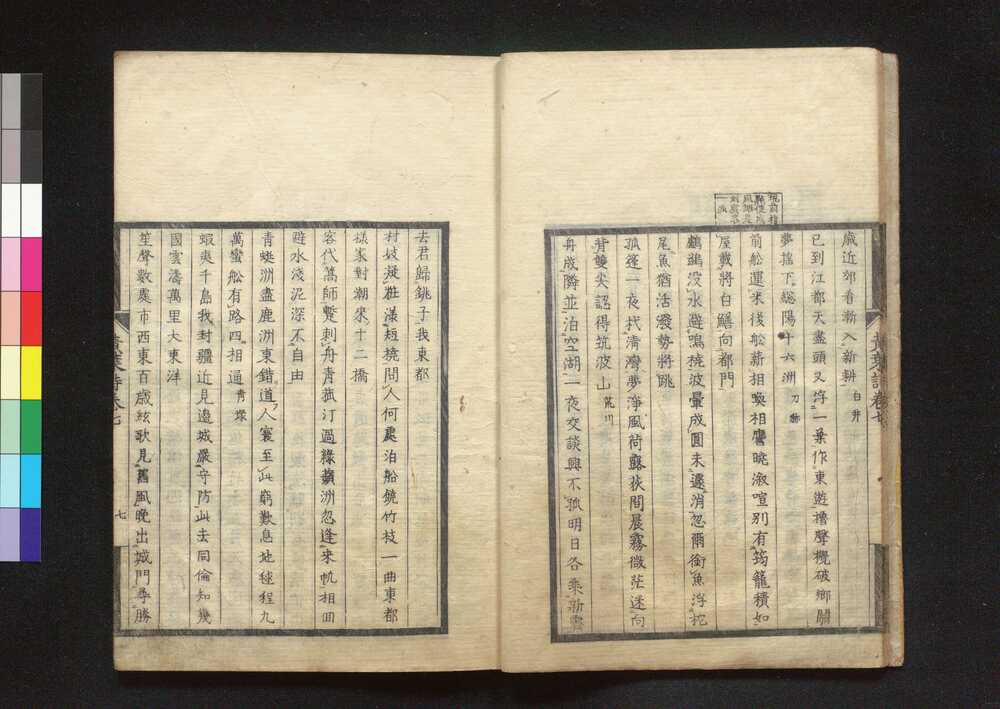 歲近郊看漸入新耕 白井
已到江都天盡頭又浮一葉作東遊擔聲攪破鄉關
夢搖下總陽十六洲 刀䑺
前舩運米後舩薪相喚相譍晀溆喧別有筠籠積如
屋載將白鱔向都門
鸕鷀没水避鳴桡波暈成圓未遽消忽爾銜魚浮柁
尾魚猶活潑勢將跳
孤篷一夜找清灣夢淨風荷露荻間晨霧微茫迷向
背雙尖認得筑波山 荒川
舟成隣並泊空湖一夜交談興不孤明日各乘新霽
去君歸銚子我東都
村妓凝粧漾短橈問人何處泊船饒竹枝一曲東都
樣家對潮來十二橋
客代篙師蹔刺舟青菰汀過綠蘋洲忽逢來帆相回
避水淺泥深不自由
青蜓洲盡鹿洲東錯道人寰至此窮歎息地毬程九
萬蠻舩有路四相通 青塚
蝦夷千島我封疆近見邊城嚴守防此去同倫知幾
國雲濤萬里大東洋
笙聲數處市西東百歲絃歌見舊風晚出城門尋勝
黃葉詩卷七
七